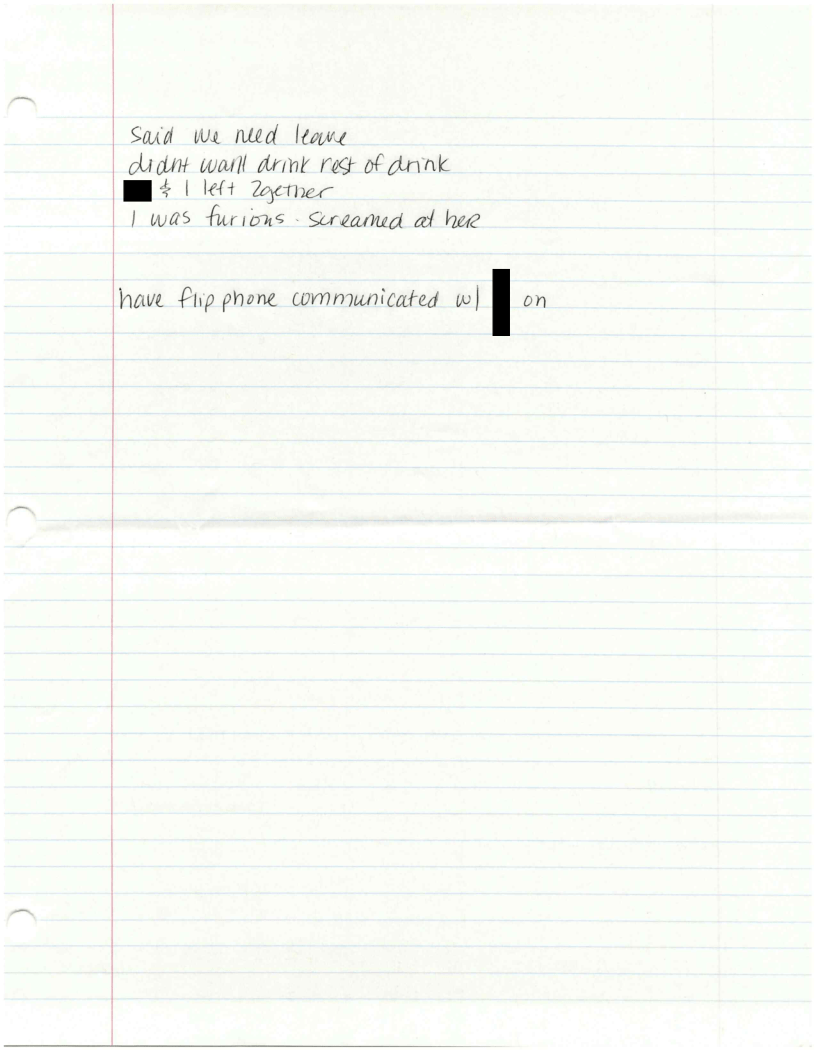 Said we need leave
didnt want drink rest of drink
& I left 2gether
I was furious. Screamed at her
have flip phone communicated w/ on